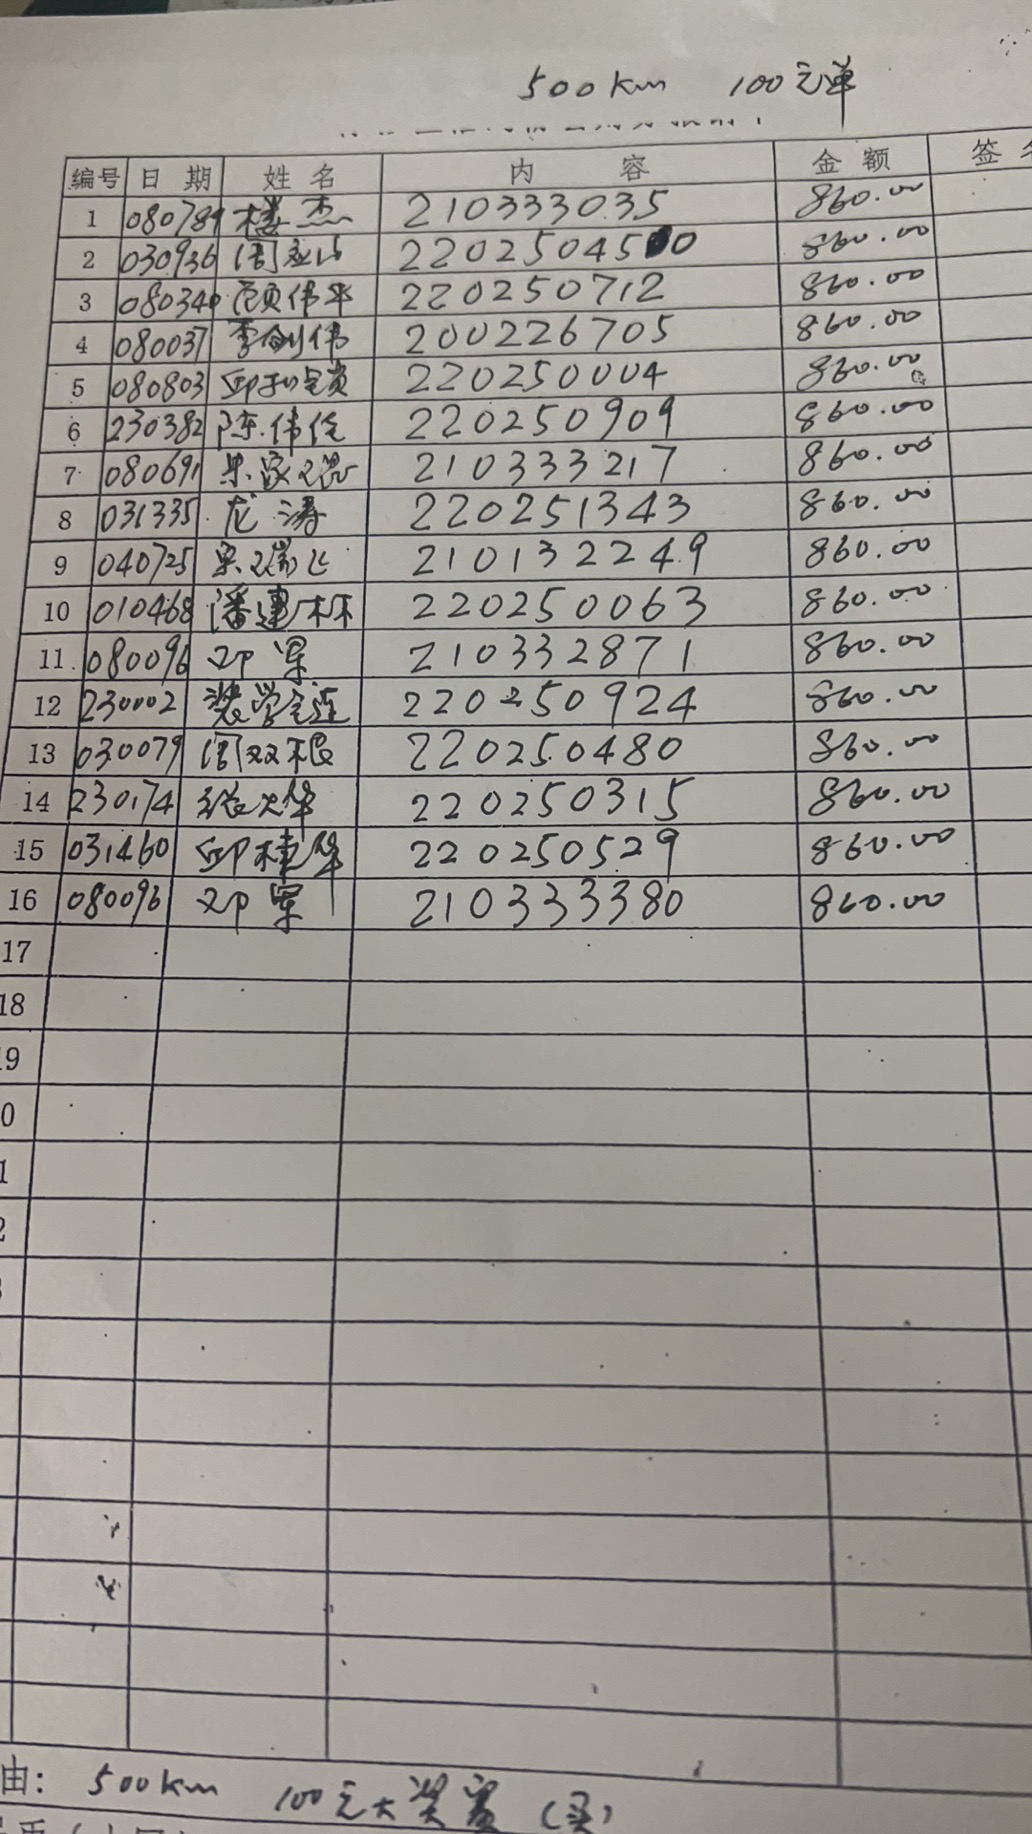 500km 100元单
编号 日期 姓名 内容 金额 签名
1 080789 楼杰 210333035 860.00
2 030936 周 2202504500 860.00
3 080340 顾伟平 220250712 860.00
4 080037 李剑伟 200226705 860.00
5 080803 邱 220250004 860.00
6 230382 陈伟佺 220250909 860.00
7 080691 210333217 860.00
8 031335 龙涛 220251343 860.00
9 040725 210132249 860.00
10 010468 潘建林 220250063 860.00
11 080096 邓军 210332871 860.00
12 230002 220250924 860.00
13 030079 周双根 220250480 860.00
14 230174 220250315 860.00
15 031460 邱桂华 220250529 860.00
16 080096 邓军 210333380 860.00
17
18
19
0
1
2
由: 500km 100元大奖赛